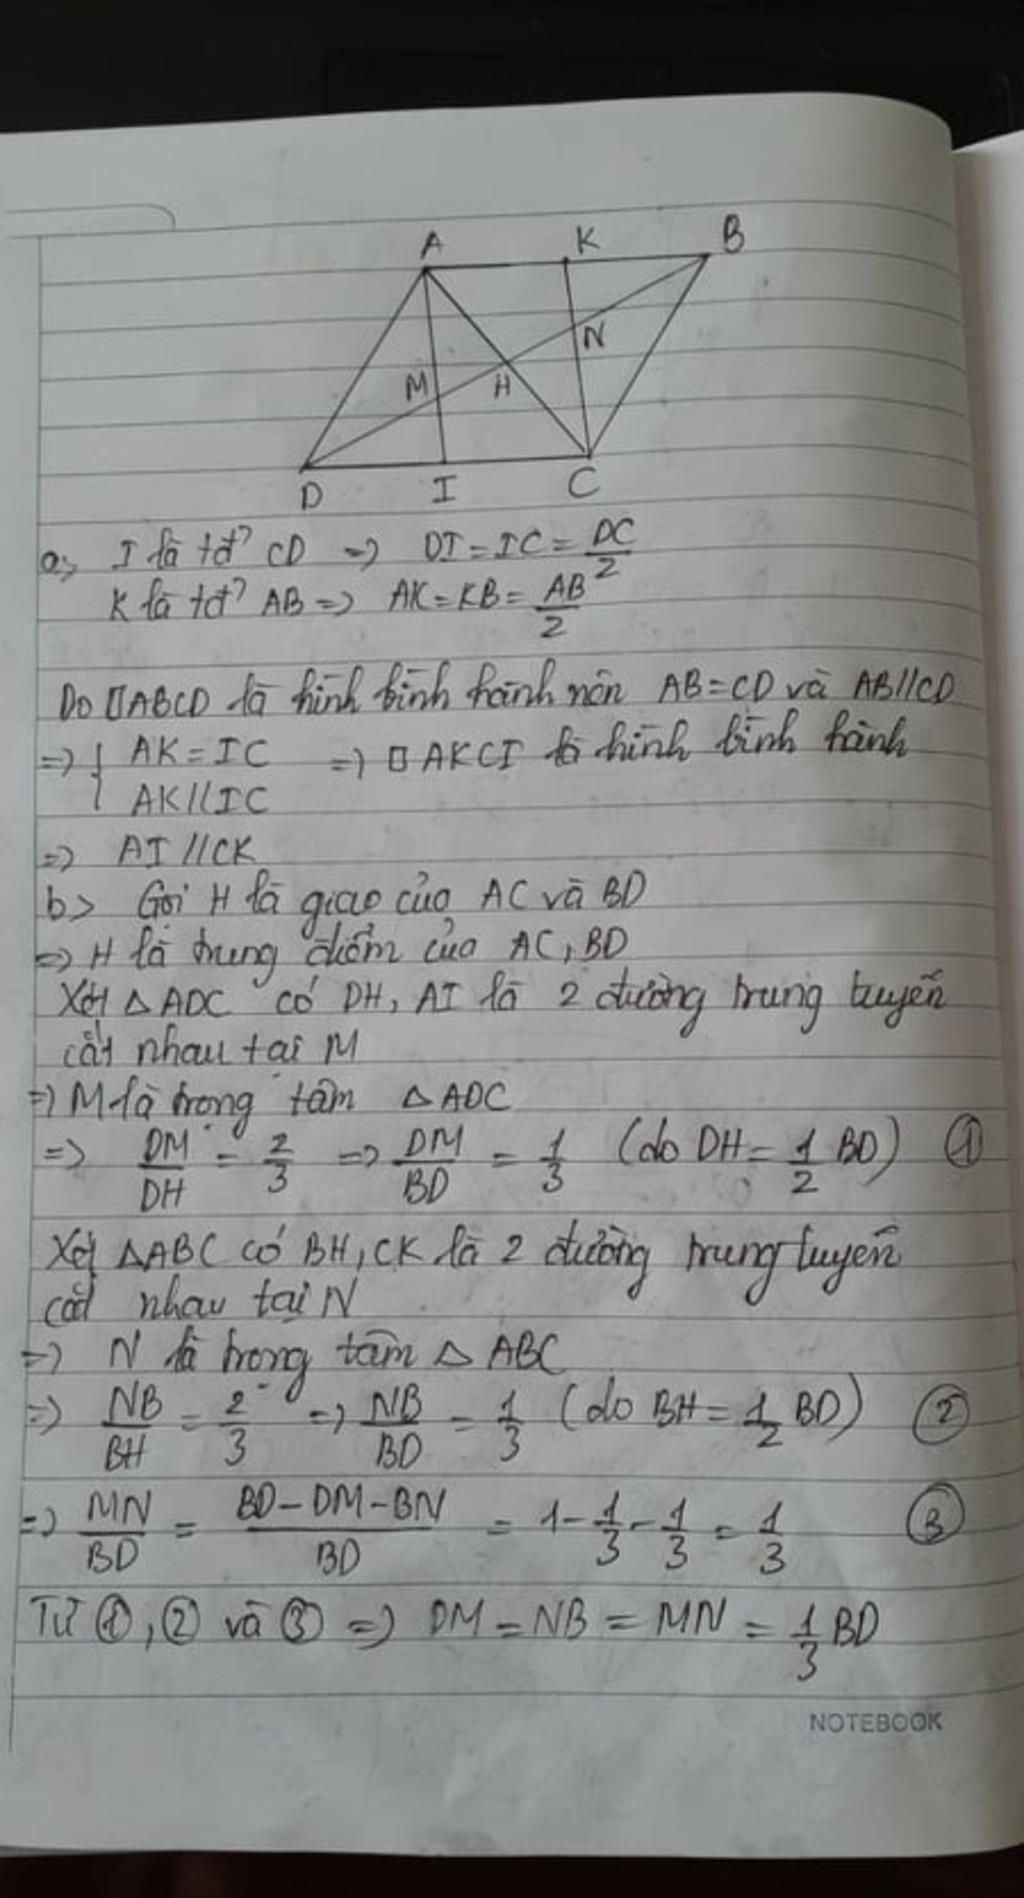 A K B
N
M H
D I C
a, I là tđ² CD => DI = IC = DC/2
K là tđ² AB => AK = KB = AB/2
Do □ABCD là hình bình hành nên AB = CD và AB//CD
=> { AK = IC => □ AKCI là hình bình hành
AK//IC
=> AI // CK
b> Gọi H là giao của AC và BD
=> H là trung điểm của AC, BD
Xét △ ADC có DH, AI là 2 đường trung tuyến
cắt nhau tại M
=> M là trọng tâm △ ADC
=> DM/DH = 2/3 => DM/BD = 1/3 (do DH = 1/2 BD) ①
Xét △ABC có BH, CK là 2 đường trung tuyến
cắt nhau tại N
=> N là trọng tâm △ ABC
=> NB/BH = 2/3 => NB/BD = 1/3 (do BH = 1/2 BD) ②
=> MN/BD = BD - DM - BN/BD = 1 - 1/3 - 1/3 = 1/3 ③
Từ ①, ② và ③ => DM = NB = MN = 1/3 BD
NOTEBOOK